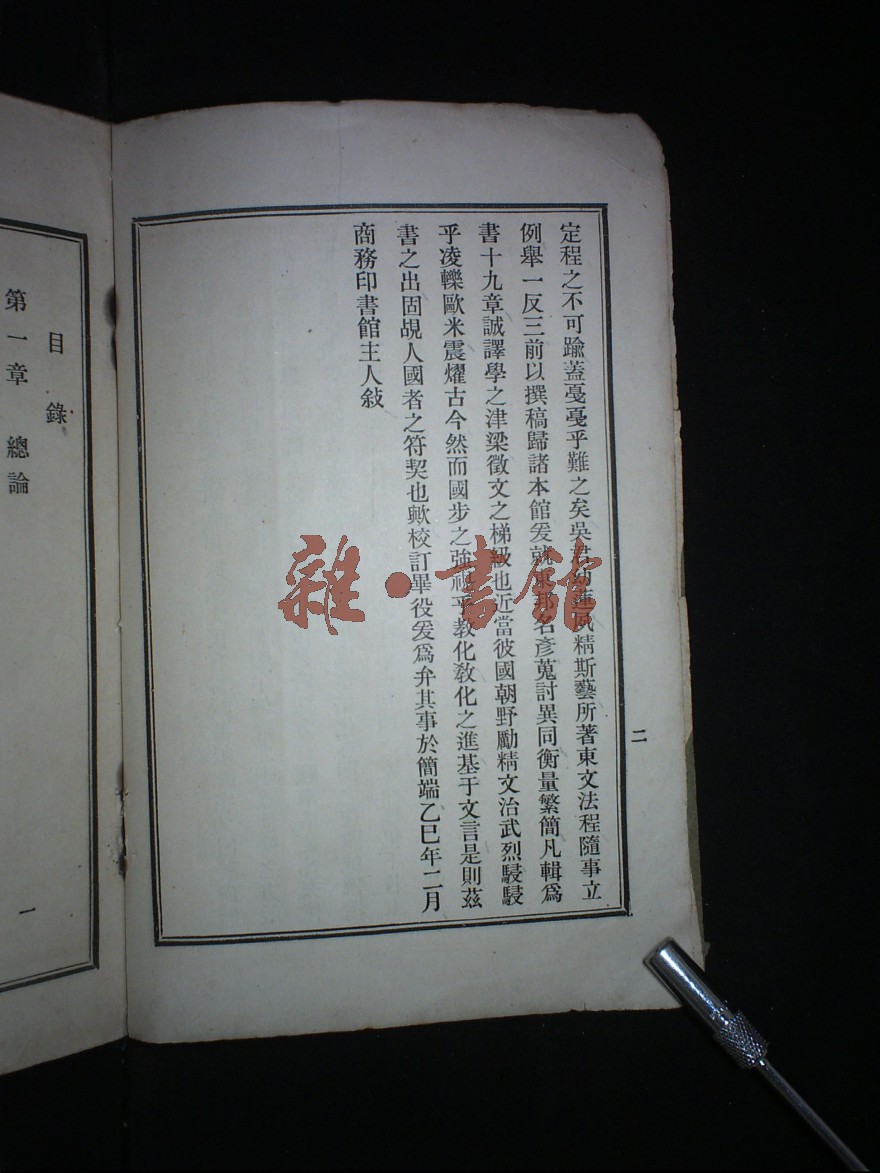 定程之不可踰蓋戞戞乎難之矣吳君幼蓮夙精斯藝所著東文法程隨事立
例舉一反三前以撰稿歸諸本館爰就東邦名彥蒐討異同衡量繁簡凡輯爲
書十九章誠譯學之津梁徵文之梯級也近當彼國朝野勵精文治武烈駸駸
乎凌轢歐米震燿古今然而國步之強視乎教化教化之進基于文言是則茲
書之出固覘人國者之符契也歟校訂畢役爰爲弁其事於簡端乙巳年二月
商務印書館主人敍
二
目錄
第一章 總論
一
雜·書館